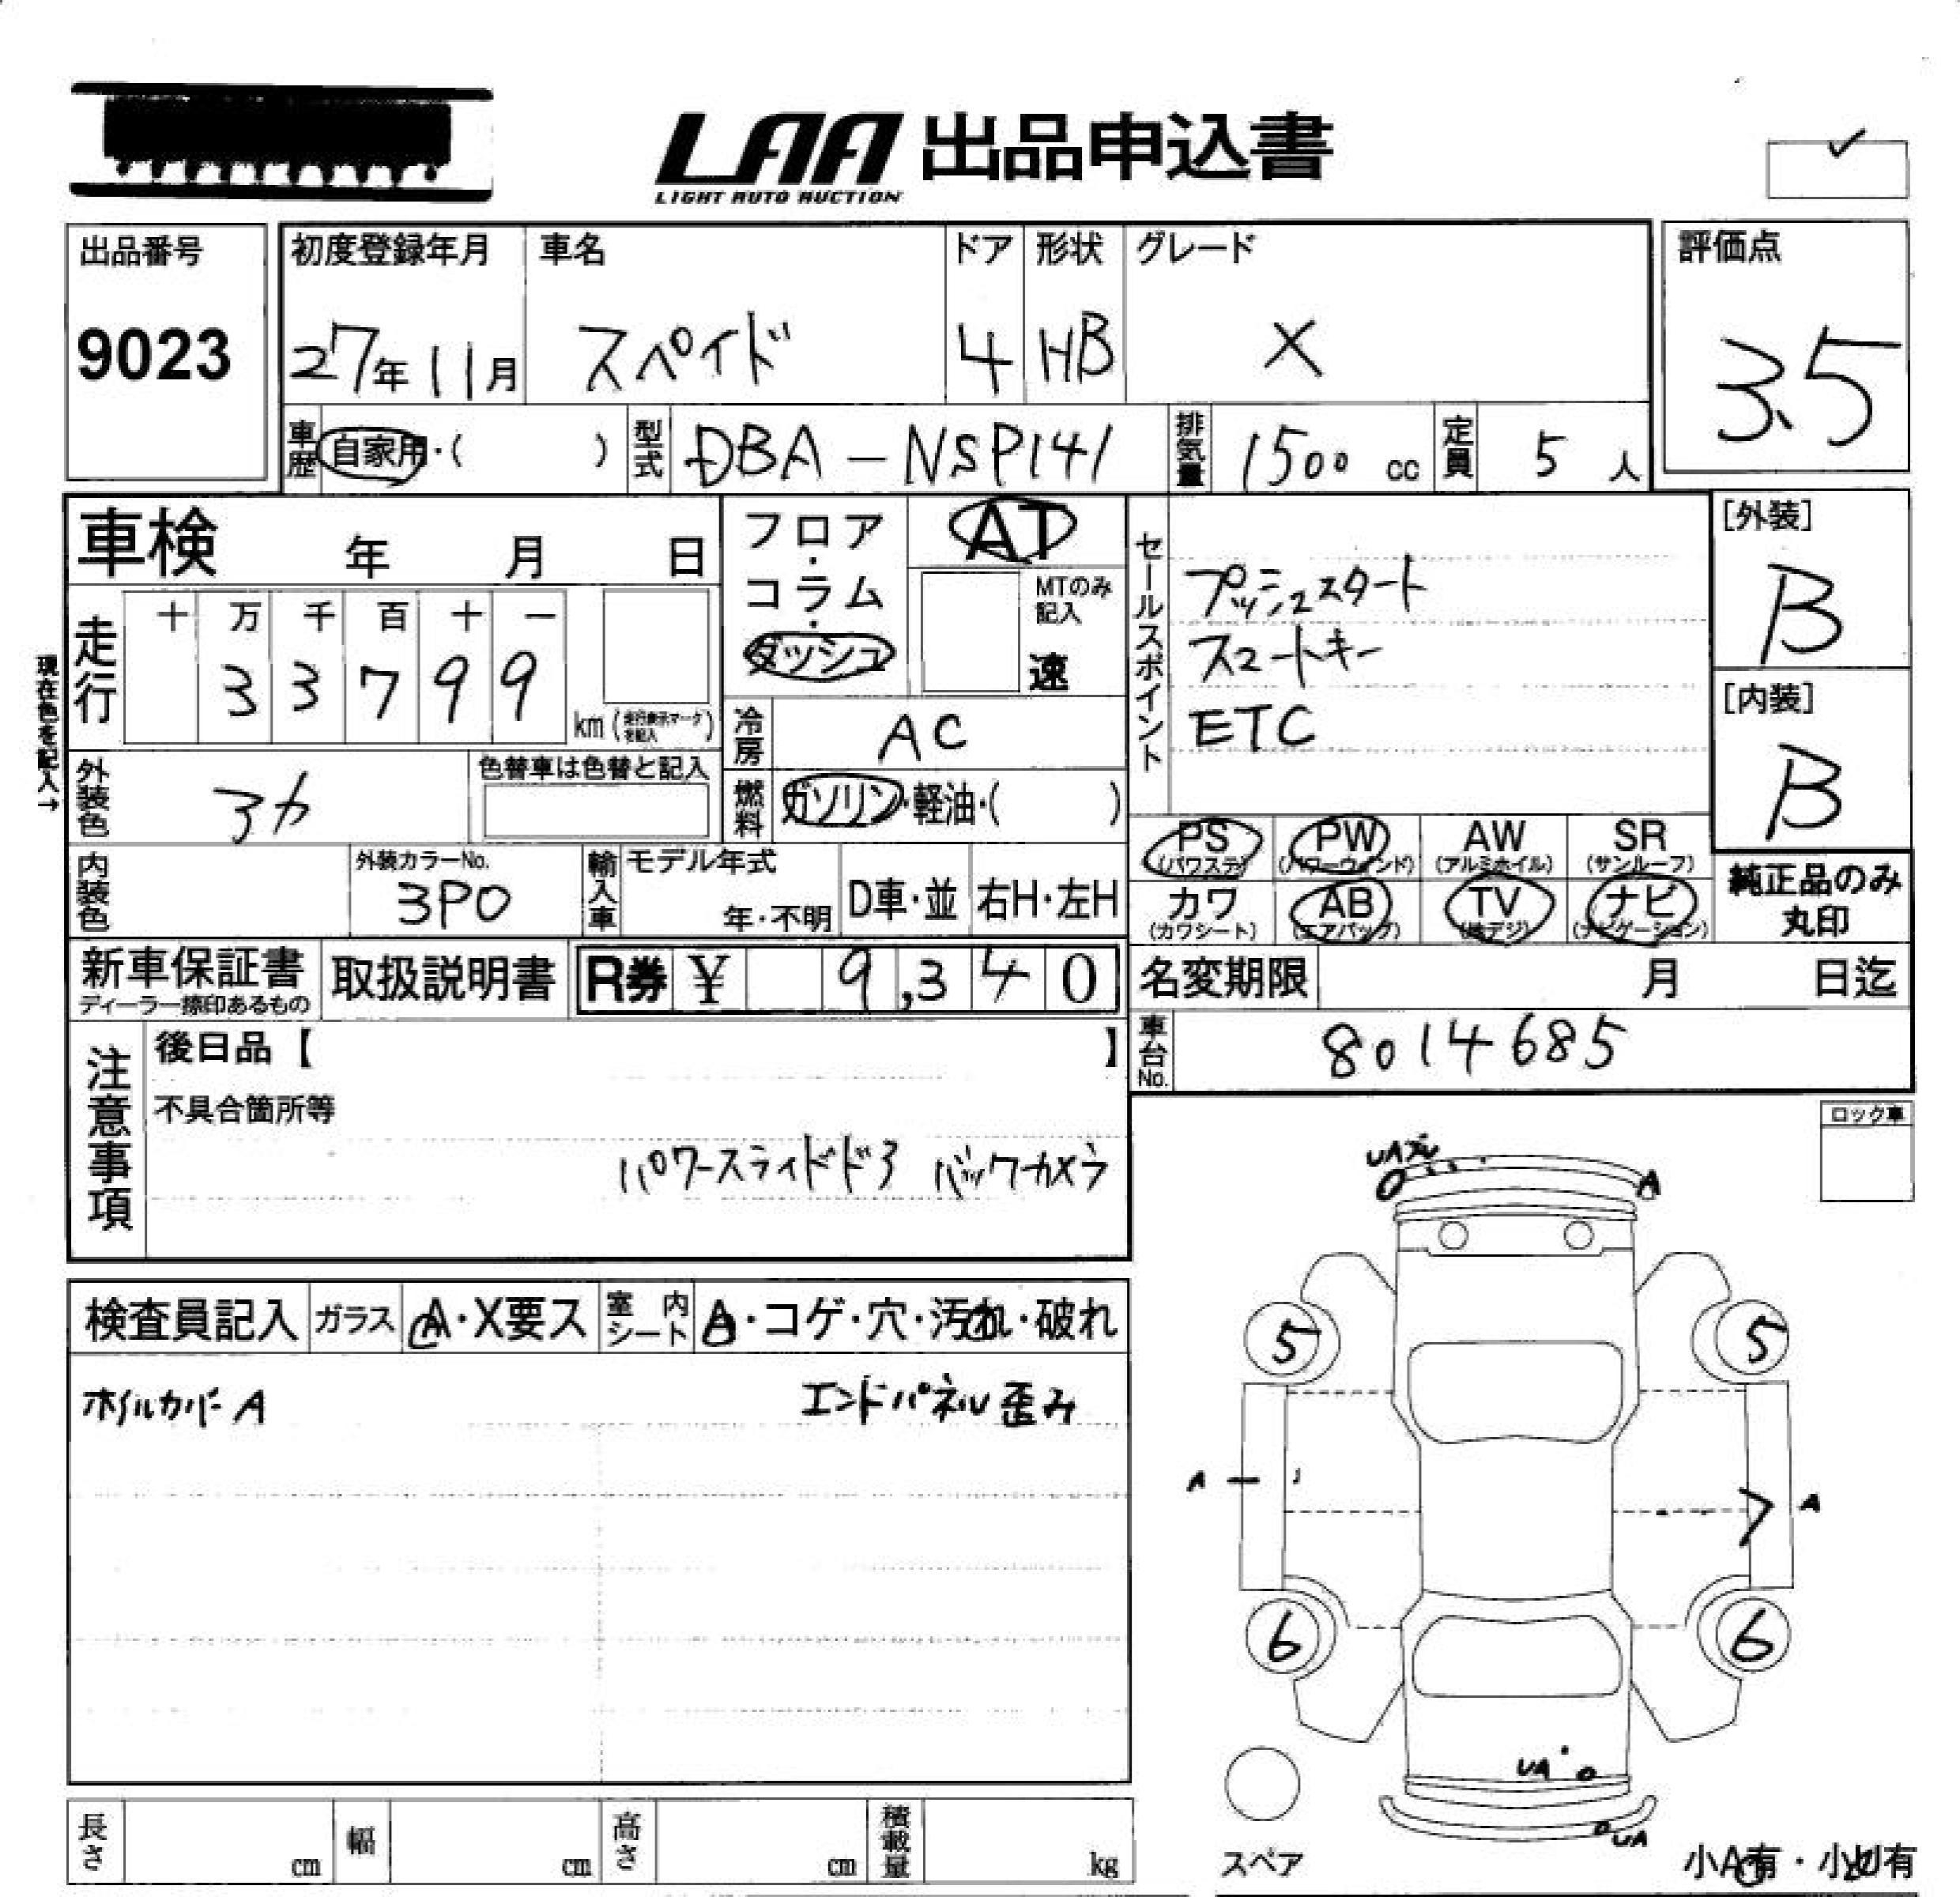 LAA 出品申込書
LIGHT AUTO AUCTION
出品番号
9023
初度登録年月
27年11月
車名
スペイド
ドア
4
形状
HB
グレード
X
評価点
3.5
車歴
自家用・( )
型式
DBA-NSP141
排気量
1500 cc
定員
5人
車検 年 月 日
フロア・コラム・ダッシュ
AT
MTのみ記入
速
セールスポイント
プッシュスタート
スマートキー
ETC
[外装]
B
[内装]
B
現在色を記入→
走行
十 万 千 百 十 一
3 3 7 9 9
km (走行表示マークを記入)
冷房
AC
外装色
アカ
色替車は色替と記入
燃料
ガソリン・軽油・( )
PS (パワステ)
PW (パワーウィンド)
AW (アルミホイル)
SR (サンルーフ)
カワ (カワシート)
AB (エアバック)
TV (地デジ)
ナビ (ナビゲーション)
純正品のみ丸印
内装色
外装カラーNo.
3P0
輸入車
モデル年式
年・不明
D車・並
右H・左H
新車保証書
ディーラー捺印あるもの
取扱説明書
R券 ¥ 9,340
名変期限 月 日迄
車台No.
8014685
注意事項
後日品【 】
不具合箇所等
パワースライドドア バックカメラ
ロック車
UA
A
検査員記入
ガラス
A・X要ス
室内シート
A・コゲ・穴・汚れ・破れ
ホイルカバー A
エンドパネル歪み
5
5
A
A
6
6
UA
UA
スペア
小A有・小U有
長さ cm
幅 cm
高さ cm
積載量 kg